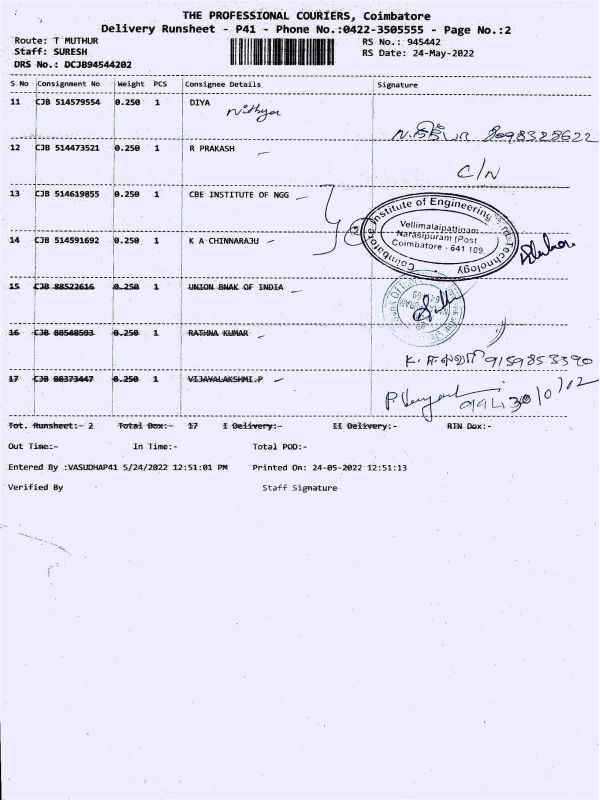 THE PROFESSIONAL COURIERS, Coimbatore
Delivery Runsheet - P41 - Phone No.:0422-3505555 - Page No.:2
Route: T MUTHUR RS No.: 945442
Staff: SURESH RS Date: 24-May-2022
DRS No.: DCJB94544202
S No Consignment No Weight PCS Consignee Details Signature
11 CJB 514579554 0.250 1 DIYA
Nithya
9098325622
12 CJB 514473521 0.250 1 R PRAKASH
C/N
13 CJB 514619855 0.250 1 CBE INSTITUTE OF NGG
Coimbatore Institute of Engineering and Technology
Vellimalaipattinam
Narasipuram (Post
Coimbatore - 641 109.
14 CJB 514591692 0.250 1 K A CHINNARAJU
15 CJB 88522616 0.250 1 UNION BNAK OF INDIA
16 CJB 88548593 0.250 1 RATHNA KUMAR
9159853390
17 CJB 88373447 0.250 1 VIJAYALAKSHMI.P
Tot. Runsheet:- 2 Total Box:- 17 I Delivery:- II Delivery:- RTN Dox:-
Out Time:- In Time:- Total POD:-
Entered By :VASUDHAP41 5/24/2022 12:51:01 PM Printed On: 24-05-2022 12:51:13
Verified By Staff Signature